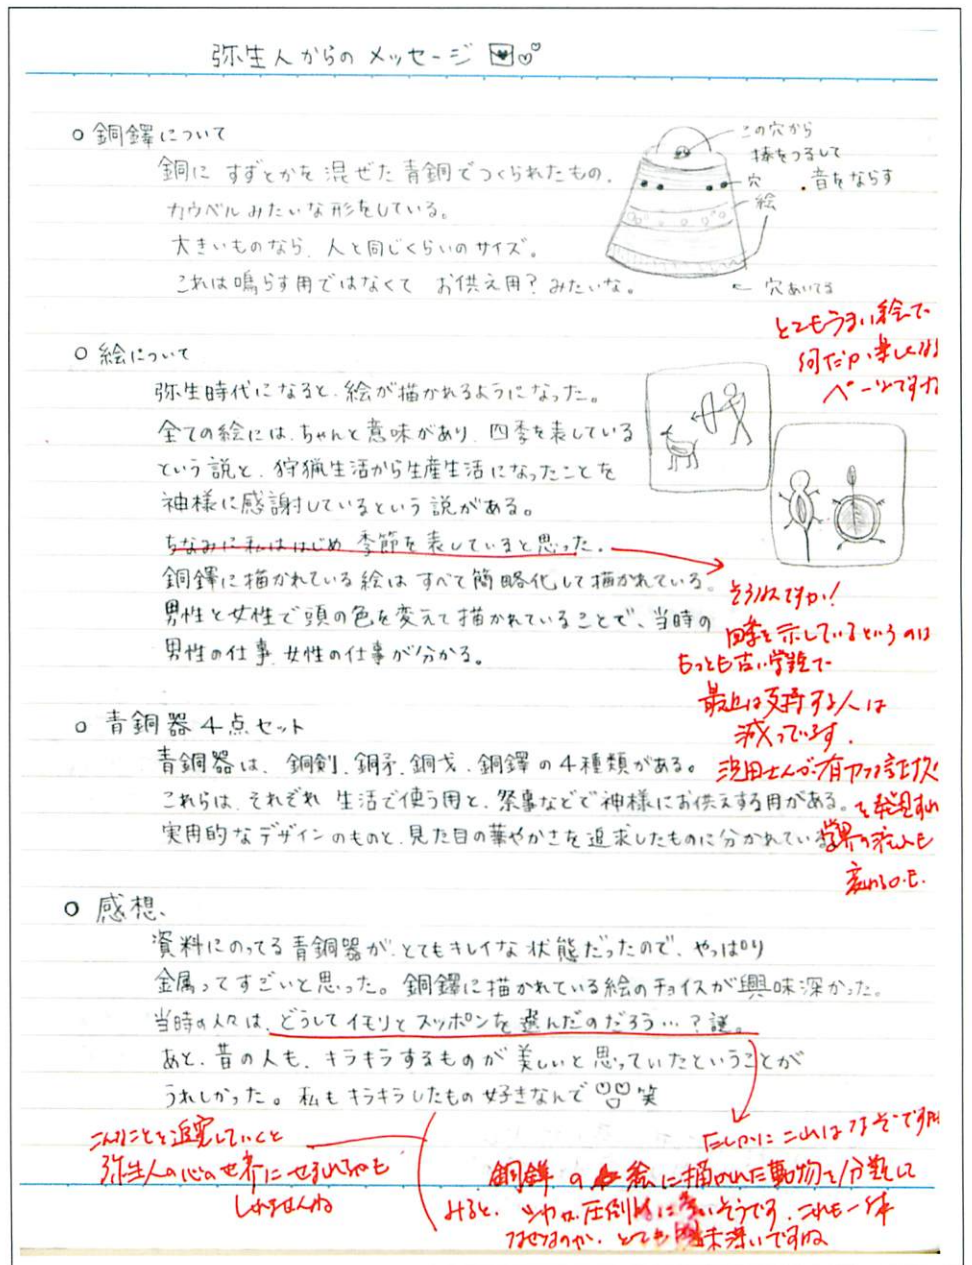 弥生人からの メッセージ
○ 銅鐸について
銅に すずとかを 混ぜた 青銅でつくられたもの。
カウベルみたいな形をしている。
大きいものなら、人と同じくらいのサイズ。
これは鳴らす用ではなくて お供え用？みたいな。
この穴から
棒をつるして
音をならす
穴
絵
← 穴あいてる
とてもうまい絵で
何だか楽しくな
ページですね
○ 絵について
弥生時代になると、絵が描かれるようになった。
全ての絵には、ちゃんと意味があり、四季を表している
という説と、狩猟生活から生産生活になったことを
神様に感謝しているという説がある。
ちなみに私ははじめ 季節を表していると思った。
銅鐸に描かれている絵は すべて簡略化して描かれている。
男性と女性で頭の色を変えて描かれていることで、当時の
男性の仕事、女性の仕事が分かる。
そうなんですか！
四季を示しているというのは
もっとも古い学説で
最近は支持する人は
減っています。
○ 青銅器4点セット
青銅器は、銅剣、銅矛、銅戈、銅鐸の4種類がある。
これらは、それぞれ 生活で使う用と、祭事などで神様にお供えする用がある。
実用的なデザインのものと、見た目の華やかさを追求したものに分かれている
を発見すれ
学界の流れも
変わるかも
○ 感想、
資料にのってる青銅器が、とてもキレイな状態だったので、やっぱり
金属ってすごいと思った。銅鐸に描かれている絵のチョイスが興味深かった。
当時の人々は、どうしてイモリとスッポンを選んだのだろう…？謎。
あと、昔の人も、キラキラするものが美しいと思っていたということが
うれしかった。私もキラキラしたもの好きなんで 笑
たしかにこれはなぞですね
銅鐸の絵に描かれた動物を分類して
みると、シカが圧倒的に多いそうです。これも一体
なぜなのか、とても興味深いですね
こんなことを追究していくと
弥生人の心の世界にせまれるかも
しれませんね